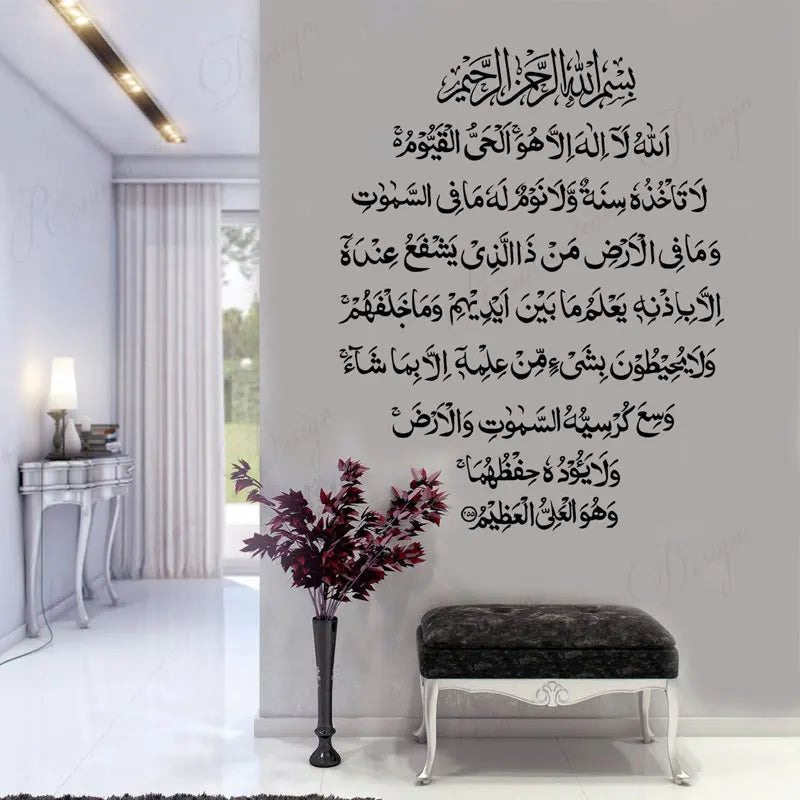 بِسْمِ اللهِ الرَّحْمٰنِ الرَّحِيْمِ
اَللهُ لَآ اِلٰهَ اِلَّا هُوَ ۚ اَلْحَىُّ الْقَيُّوْمُ ەۚ
لَا تَاْخُذُهٗ سِنَةٌ وَّلَا نَوْمٌ لَهٗ مَا فِى السَّمٰوٰتِ
وَمَا فِى الْاَرْضِ مَنْ ذَا الَّذِىْ يَشْفَعُ عِنْدَهٗٓ
اِلَّا بِاِذْنِهٖ يَعْلَمُ مَا بَيْنَ اَيْدِيْهِمْ وَمَا خَلْفَهُمْ ۚ
وَلَا يُحِيْطُوْنَ بِشَىْءٍ مِّنْ عِلْمِهٖٓ اِلَّا بِمَا شَآءَ ۚ
وَسِعَ كُرْسِيُّهُ السَّمٰوٰتِ وَالْاَرْضَ ۚ
وَلَا يَـُٔوْدُهٗ حِفْظُهُمَا ۚ
وَهُوَ الْعَلِىُّ الْعَظِيْمُ ﴿۲۵۵﴾
Design